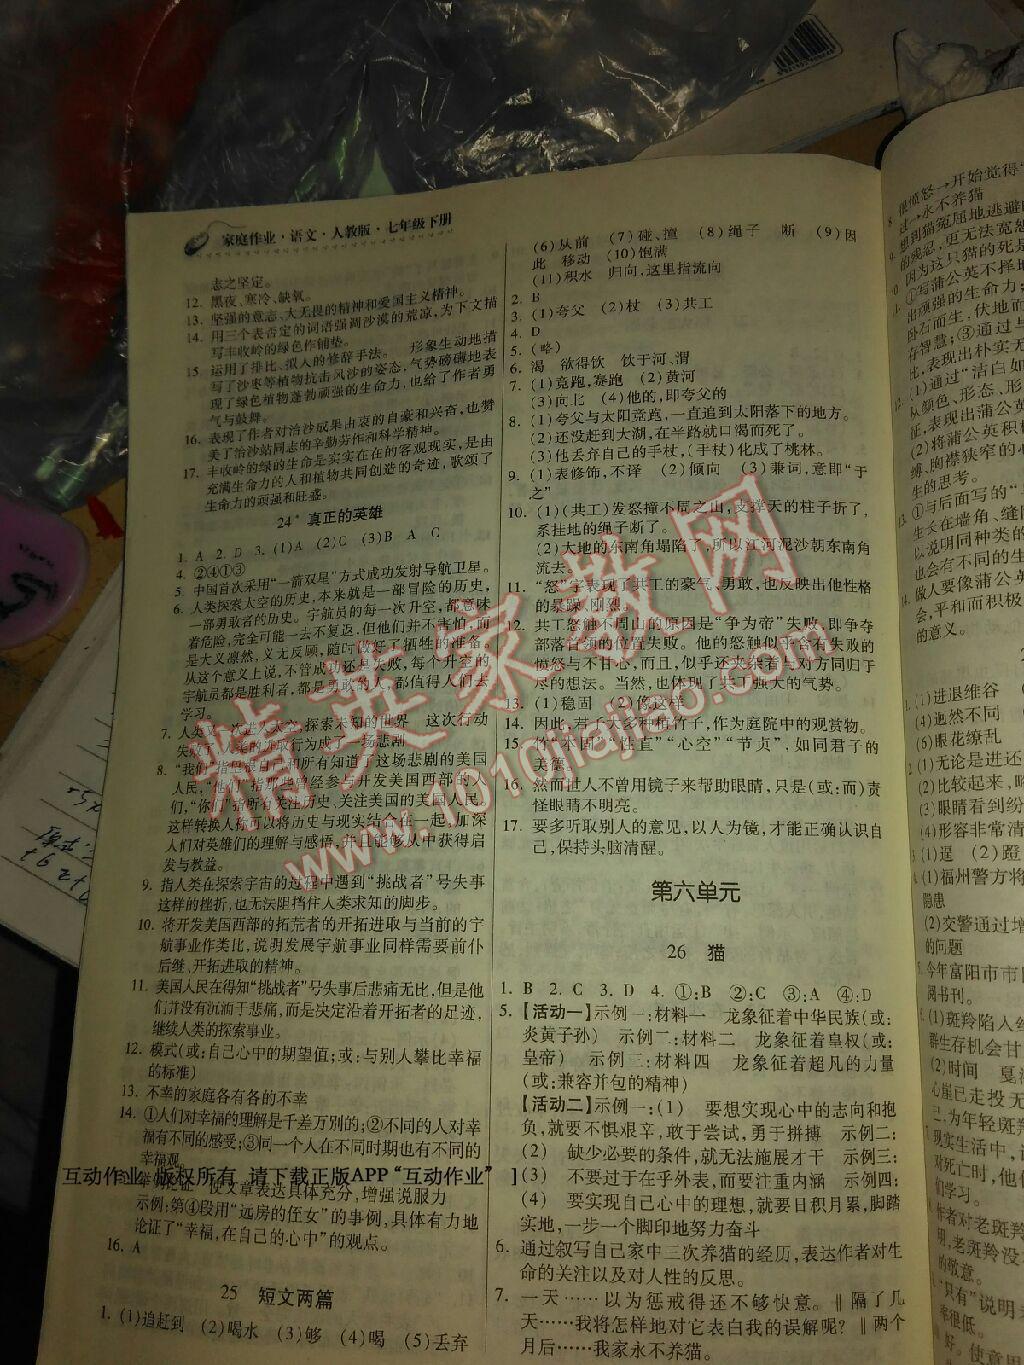 家庭作业·语文·人教版·七年级下册
志之坚定。
12. 黑夜、寒冷、缺氧。
13. 坚强的意志、大无畏的精神和爱国主义精神。
14. 用三个表否定的词语强调沙漠的荒凉,为下文描
写丰收岭的绿色作铺垫。
15. 运用了排比、拟人的修辞手法。 形象生动地描
写了沙枣等植物抗击风沙的姿态,气势磅礴地表
现了绿色植物蓬勃顽强的生命力,也给了作者勇
气与鼓舞。
16. 表现了作者对治沙成果由衷的自豪和兴奋,也赞
美了治沙站同志的辛勤劳作和科学精神。
17. 丰收岭的绿的生命是实实在在的客观现实,是由
充满生命力的人和植物共同创造的奇迹,歌颂了
生命力的顽强和旺盛。
24* 真正的英雄
1. A 2. D 3. (1)A (2)C (3)B A C
4. ②④①③
5. 中国首次采用“一箭双星”方式成功发射导航卫星。
6. 人类探索太空的历史,本来就是一部冒险的历史,
一部勇敢者的历史。宇航员的每一次升空,都意味
着危险,完全可能一去不复返,但他们并不害怕,而
是大义凛然,义无反顾,随时做好了牺牲的准备。
从这个意义上说,不管成功还是失败,每个升空的
宇航员都是胜利者,都是勇敢的人,都值得人们去
学习。
7. 人类又一次进入太空,探索未知的世界 这次行动
失败了,人类的进取行为成了一场悲剧
8. “我们”指里根自己和所有知道了这场悲剧的美国
人民,“他们”指那些曾经参与开发美国西部的人
们,“你们”指所有关注历史、关注美国的美国人民。
这样转换人称可以将历史与现实结合在一起,加深
人们对英雄们的理解与感悟,并且能够从中获得启
发与教益。
9. 指人类在探索宇宙的过程中遇到“挑战者”号失事
这样的挫折,也无法阻挡住人类求知的脚步。
10. 将开发美国西部的拓荒者的开拓进取与当前的宇
航事业作类比,说明发展宇航事业同样需要前仆
后继、开拓进取的精神。
11. 美国人民在得知“挑战者”号失事后悲痛无比,但是他
们并没有沉湎于悲痛,而是决定沿着开拓者的足迹,
继续人类的探索事业。
12. 模式(或:自己心中的期望值;或:与别人攀比幸福
的标准)
13. 不幸的家庭各有各的不幸
14. ①人们对幸福的理解是千差万别的;②不同的人对幸
福有不同的感受;③同一个人在不同时期也有不同的
幸福观。
互动作业 版权所有 请下载正版APP“互动作业”
使文章表达具体充分,增强说服力
示例:第④段用“远房的侄女”的事例,具体有力地
论证了“幸福,在自己的心中”的观点。
16. A
25 短文两篇
1. (1)追赶到 (2)喝水 (3)够 (4)喝 (5)丢弃
(6)从前 (7)碰、撞 (8)绳子 断 (9)因
此 移动 (10)饱满
(11)积水 归向,这里指流向
2. B
3. (1)夸父 (2)杖 (3)共工
4. D
5. (略)
6. 渴 欲得饮 饮于河、渭
7. (1)竞跑,赛跑 (2)黄河
(3)向北 (4)他的,即夸父的
8. (1)夸父与太阳竞跑,一直追到太阳落下的地方。
(2)还没赶到大湖,在半路就口渴而死了。
(3)他丢弃自己的手杖,(手杖)化成了桃林。
9. (1)表修饰,不译 (2)倾向 (3)兼词,意即“于
之”
10. (1)(共工)发怒撞不周之山,支撑天的柱子折了,
系挂地的绳子断了。
(2)大地的东南角塌陷了,所以江河泥沙朝东南角
流去。
11. “怒”字表现了共工的豪气、勇敢,也反映出他性格
的暴躁、刚烈。
12. 共工怒触不周山的原因是“争为帝”失败,即争夺
部落首领的位置失败。他的怒触似乎含有失败的
愤怒与不甘心,而且,似乎还夹杂着与对方同归于
尽的想法。当然,也体现了共工强大的气势。
13. (1)稳固 (2)像这样
14. 因此,君子大多种植竹子,作为庭院中的观赏物。
15. 竹“本固”“性直”“心空”“节贞”,如同君子的
美德。
16. 然而世人不曾用镜子来帮助眼睛,只是(或:而)责
怪眼睛不明亮。
17. 要多听取别人的意见,以人为镜,才能正确认识自
己,保持头脑清醒。
第六单元
26 猫
1. B 2. C 3. D 4. ①:B ②:C ③:A ④:D
5. 【活动一】示例一:材料一 龙象征着中华民族(或:
炎黄子孙) 示例二:材料二 龙象征着皇权(或:
皇帝) 示例三:材料四 龙象征着超凡的力量
(或:兼容并包的精神)
【活动二】示例一:(1) 要想实现心中的志向和抱
负,就要不惧艰辛,敢于尝试,勇于拼搏 示例二:
(2) 缺少必要的条件,就无法施展才干 示例三:
(3) 不要过于在乎外表,而要注重内涵 示例四:
(4) 要实现自己心中的理想,就要日积月累,脚踏
实地,一步一个脚印地努力奋斗
6. 通过叙写自己家中三次养猫的经历,表达作者对生
命的关注以及对人性的反思。
7. 一天……以为惩戒得还不够快意。‖隔了几
天……我将怎样地对它表白我的误解呢?‖两个
月后……我家永不养猫。
精英家教网
www.1010jiajiao.com
很愤怒→开始觉得
过→永不养猫
想到猫冤屈地逃避
的残忍,更无法宽恕
因为这只猫的死
①写蒲公英不择地
出顽强的生命力;
卧石而生,伏地而
存智慧;③通过与
比,表现出朴实无
(1)通过“洁白如
从颜色、形态、形
征,表现出蒲公英
(2)将蒲公英积极
缚、胸襟狭窄的心
生的思考。
①与后面写的“
生长在墙角、缝
以说明同种类的
也会有不同的生
做人要像蒲公英
会,平和而积极
的意义。
(1)进退维谷
(4)迥然不同
(5)眼花缭乱
(1)无论是进还
(2)比较起来,
(3)眼睛看到纷
(4)形容非常清
(1)逞 (2)蹬
(1)福州警方将
隐患
(2)交警通过增
的问题
今年富阳市市民
阅书刊。
(1)斑羚陷入绝
群生存机会甘
(2)时间 夏
心崖已走投无
已,为年轻斑羚
现实生活中,
对死亡时,他
们学习。
作者对老斑羚
明,老斑羚没
的敬意。
“只有”说明
率很低。
好。使意思